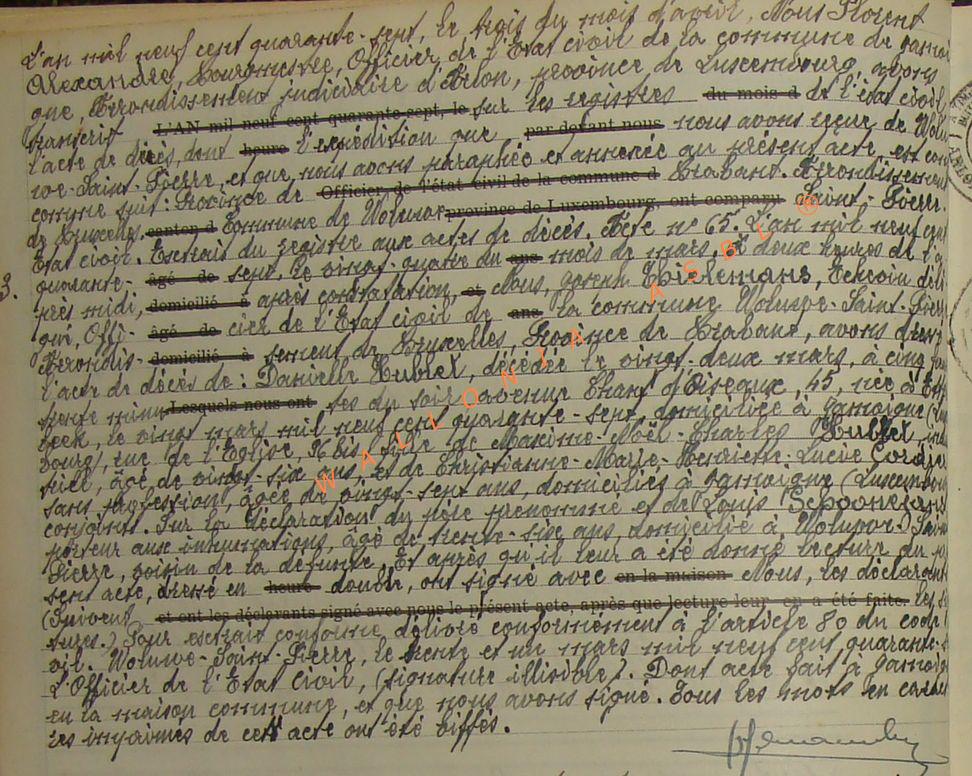 L'an mil neuf cent quarante-sept, le trois du mois d'avril, Nous Florent
Alexandre, Bourgmestre, Officier de l'Etat civil de la commune de Jamoi-
gne, Arrondissement judiciaire d'Arlon, province de Luxembourg, avons
transcrit L'AN mil neuf cent quarante-sept, le sur les registres du mois d de l'état civil
l'acte de décès, dont heure l'expédition que par devant nous nous avons reçue de Wolu-
we-Saint-Pierre, et que nous avons paraphée et annexée au présent acte, est con
comme suit: Province de Officier de l'état civil de la commune d Brabant. Arrondissement
de Bruxelles, canton d Commune de Woluwe province de Luxembourg, ont comparu Saint-Pierre.
Etat civil. Extrait du registre aux actes de décès. Acte n° 65. L'an mil neuf cent
quarante- âgé de sept, le vingt-quatre du ans mois de mars, à deux heures de l'a
3. près midi, domicilié à après constatation, et Nous, Echevin délé
gué, Offi- âgé de cier de l'Etat civil de ans la commune Woluwe-Saint-Pierre
Arrondis- domicilié à sement de Bruxelles, Province de Brabant, avons dressé
l'acte de décès de: Danielle Hublet, décédée le vingt-deux mars, à cinq heures
trente minu Lesquels nous ont tes du soir avenue Chant d'Oiseaux, 45, née à Et
beek, le vingt mars mil neuf cent quarante-sept, domiciliée à Jamoigne (Luxem
bourg), rue de l'Eglise, fille de Maxime-Noël-Charles Hublet,
âgé de vingt-six ans, et de Christianne-Marie-Henriette-Lucie Cordier
sans profession, âgée de vingt-sept ans, domiciliés à Jamoigne (Luxembourg
conjoints. Sur la déclaration du père prénommé et de Louis
porteur aux inhumations, âgé de trente-six ans, domicilié à Woluwe-Saint-
Pierre, voisin de la défunte. Et après qu'il leur a été donné lecture du pré
sent acte, dressé en heure double, ont signé avec en la maison Nous, les déclarants
(Suivent et ont les déclarants signé avec nous le présent acte, après que lecture leur en a été faite. les signa
tures.) Pour extrait conforme délivré conformément à l'article 80 du code
vil. Woluwe-Saint-Pierre, le trente et un mars mil neuf cent quarante-
L'Officier de l'Etat civil, (signature illisible). Dont acte fait à Jamoigne
en la maison commune, et que nous avons signé. Tous les mots en carac
tères imprimés de cet acte ont été biffés.
WALLONIA ASBL ®